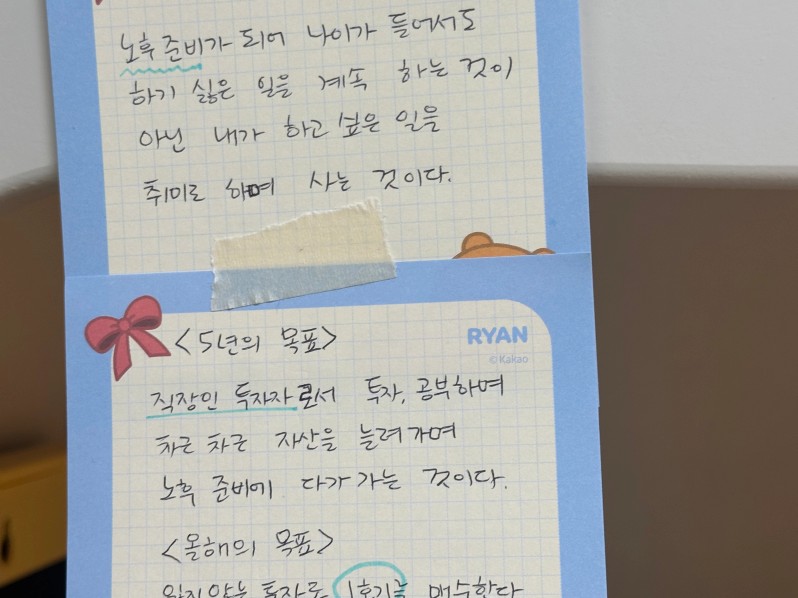 노후 준비가 되어 나이가 들어서도
하기 싫은 일을 계속 하는 것이
아닌 내가 하고 싶은 일을
취미로 하며 사는 것이다.
<5년의 목표>
RYAN
©Kakao
직장인 투자자로서 투자, 공부하며
차근 차근 자산을 늘려가며
노후 준비에 다가가는 것이다.
<올해의 목표>
잃지않는 투자로 1호기를 매수한다